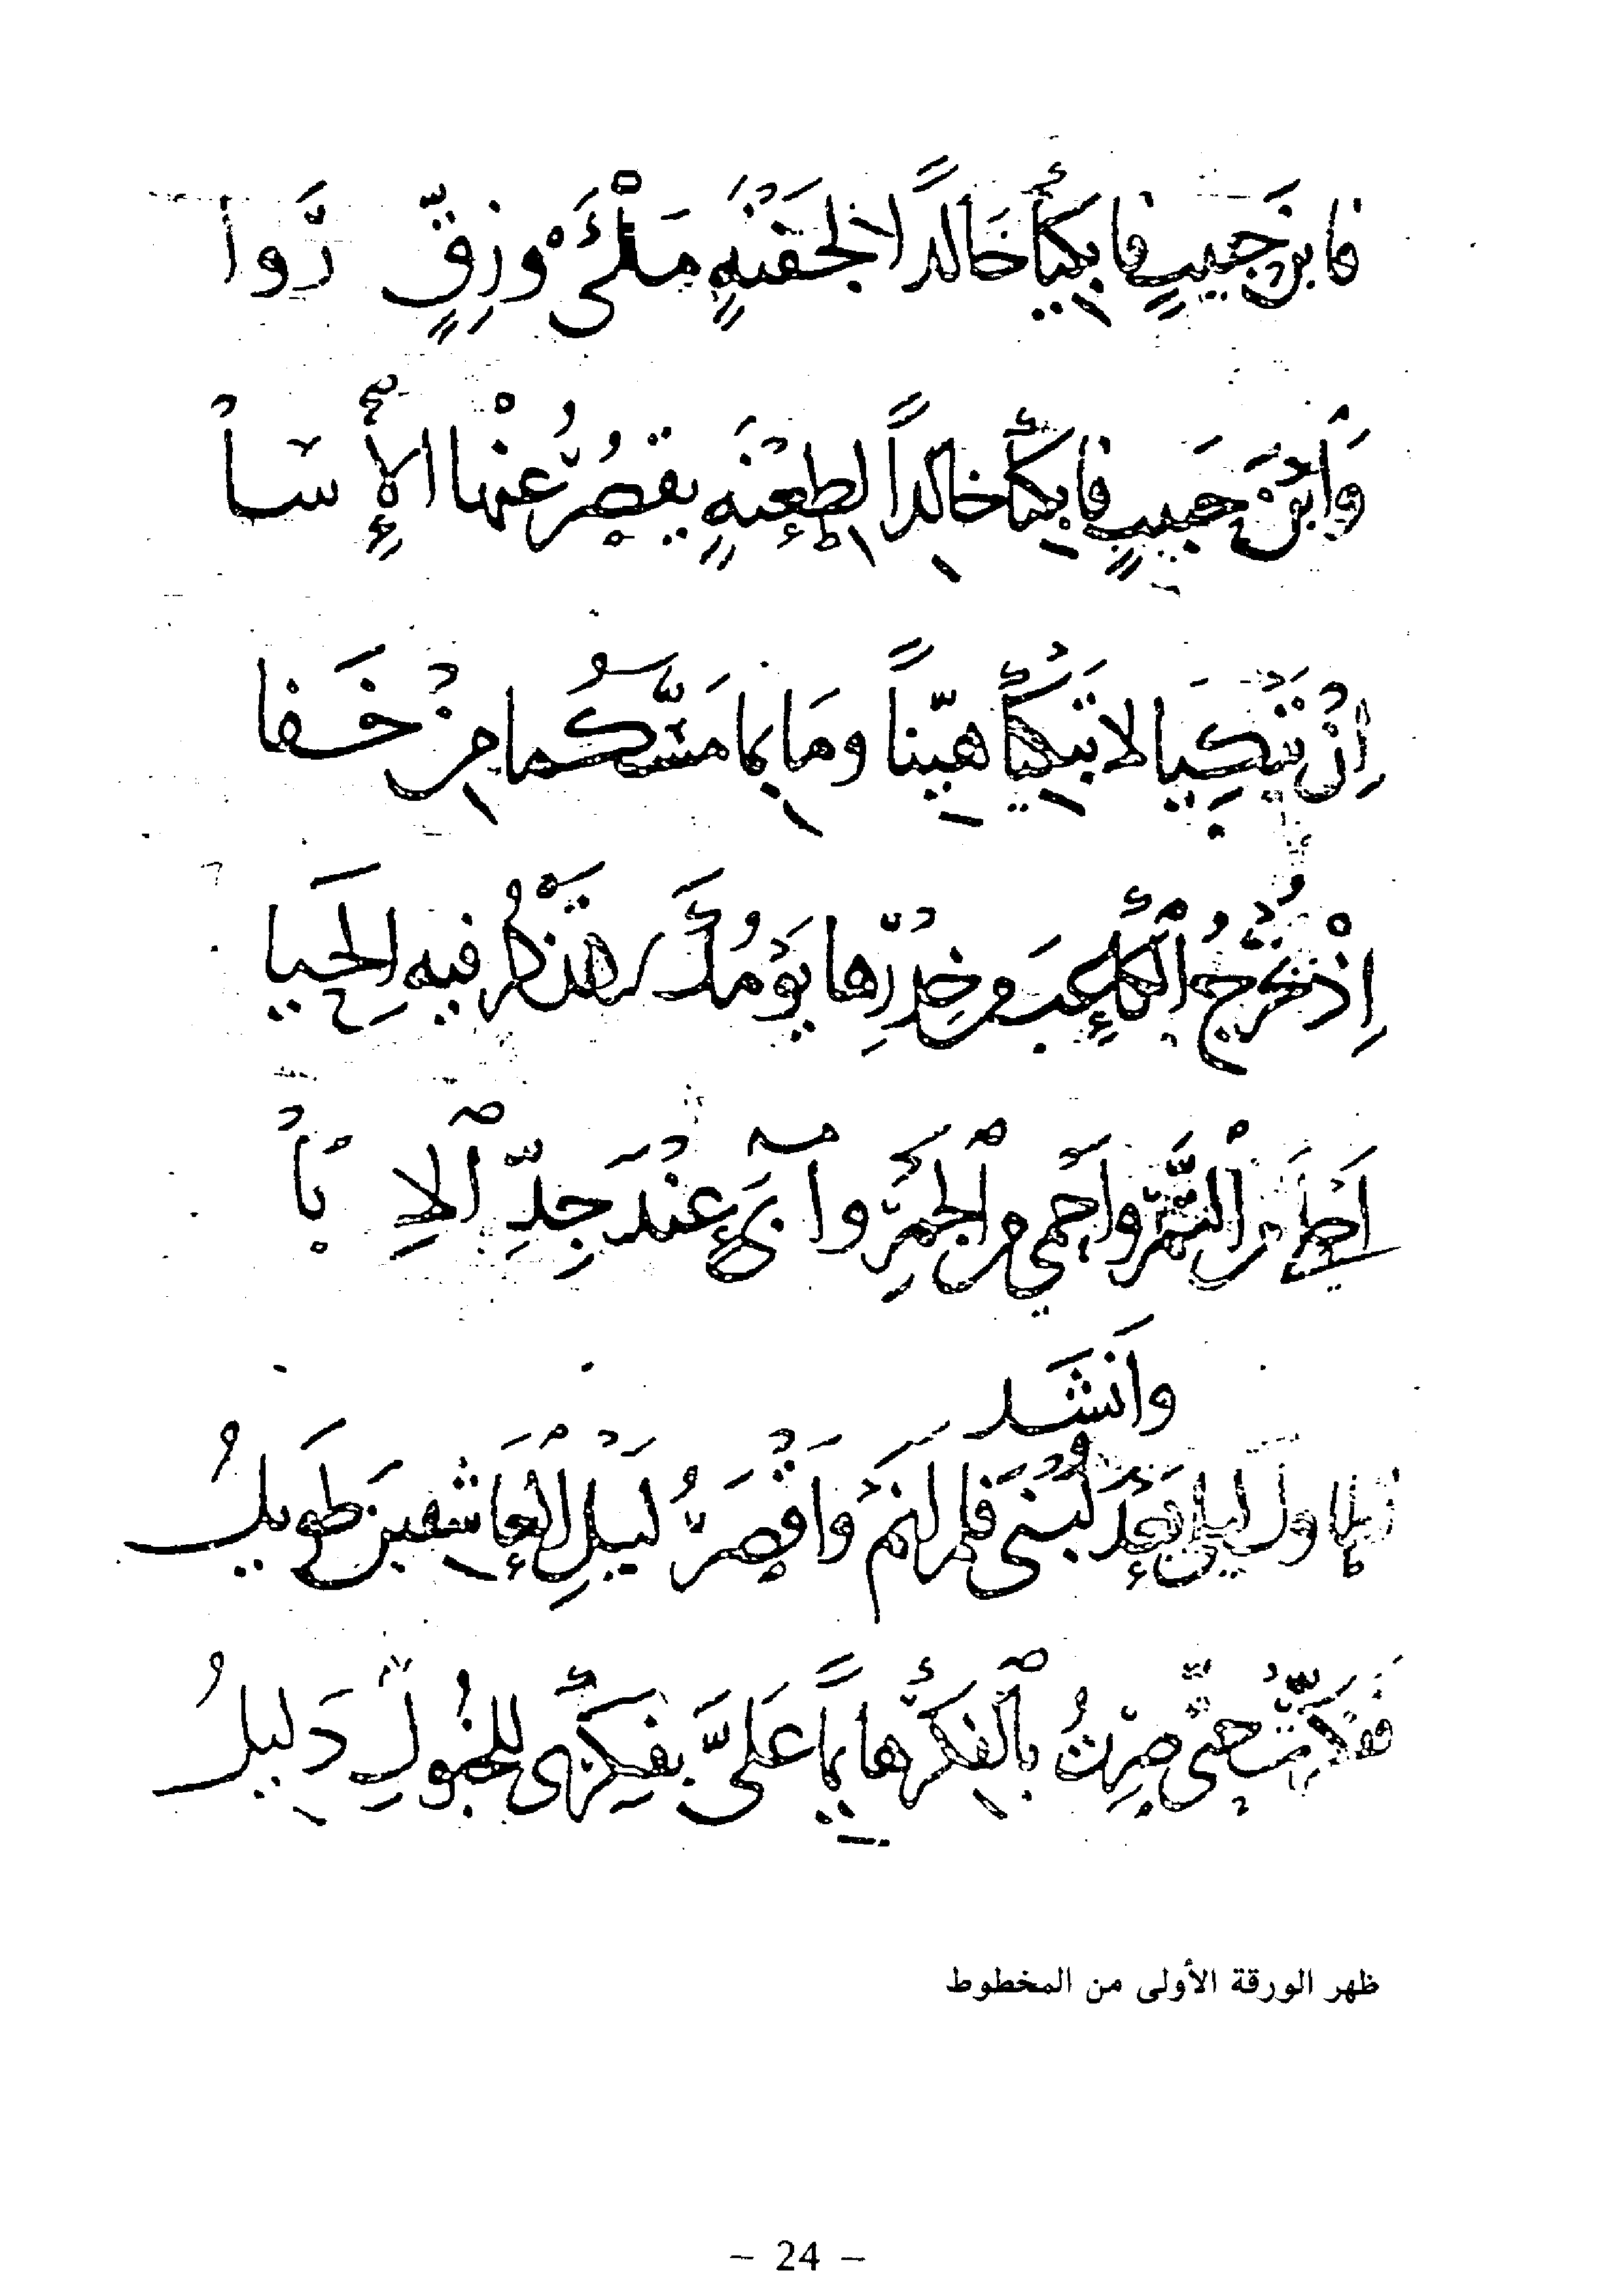 فابنَ حبيبٍ فابكيَا خَالدًا لجَفْنَةٍ مَلْأَى وزِقٍّ رَّوا
وَٱبْنَ حَبيبٍ فابكيَا خالدًا لطعْنةٍ يقصُرُ عنْها الإسا
إنْ تَبْكيا لا تبكيَا هيّنًا ومَا بما مَسَّكُما مِنْ خَفا
إذْ تخْرُجُ ٱلكاعبُ من خِدْرِها يَوْمُكَ لا تذْكُرُ فيه الحَيا
وٱحمي من ٱلجَمْرِ وآبى عنْدَ جِدِّ ٱلإ با
وأنشَد
تطاولَ ليلي بعْدَ لُبنى فلمْ أنَمْ وأقْصَرُ ليْلِ ٱلعَاشقينَ طَويلُ
ففكّرْتُ حتّى صِرْتُ بٱلفكْرِ هايمًا عَليَّ بفِكْري للخُبُولِ دَليلُ
ظهر الورقة الأولى من المخطوط
– 24 –